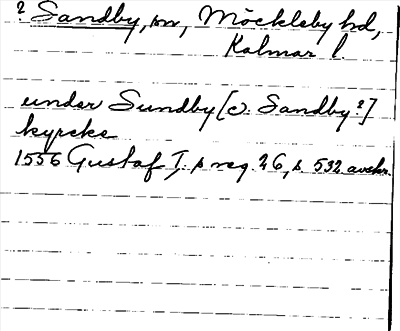 ? Sandby, sn, Möckleby hd,
Kalmar l.
under Sundby [ɔ: Sandby?]
kyrcke
1556 Gustaf I:s reg. 26, s. 532 avskr.